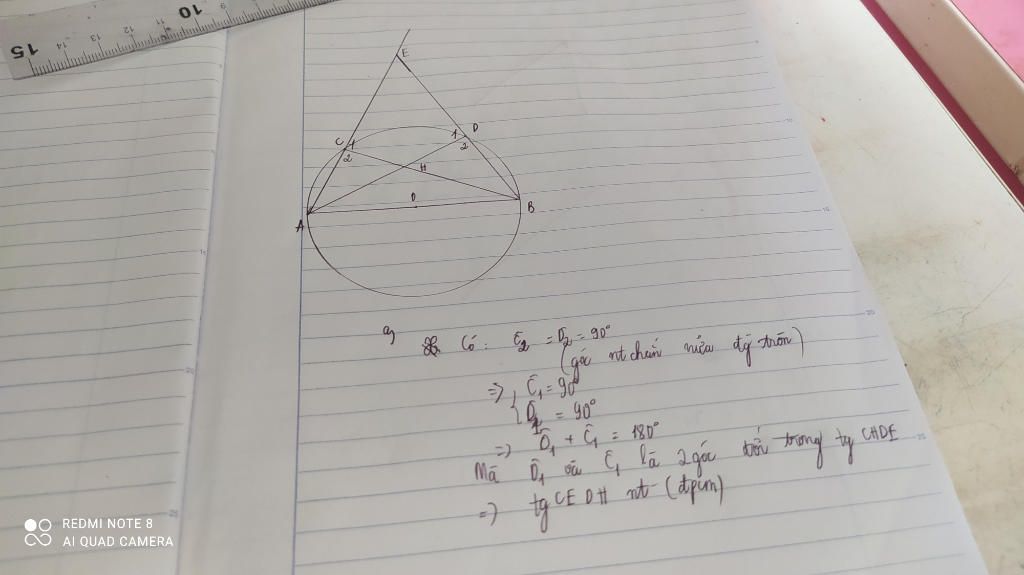 15 14 13 12 11 10
E
C 1 1 D
2 2
H
O
A B
a, Có: Ĉ2 = D̂2 = 90°
(góc nt chắn nửa đg tròn)
=> { Ĉ1 = 90°
D̂1 = 90°
=> D̂1 + Ĉ1 = 180°
Mà D̂1 và Ĉ1 là 2 góc đối trong tg CHDE
=> tg CEDH nt (đpcm)
REDMI NOTE 8
AI QUAD CAMERA